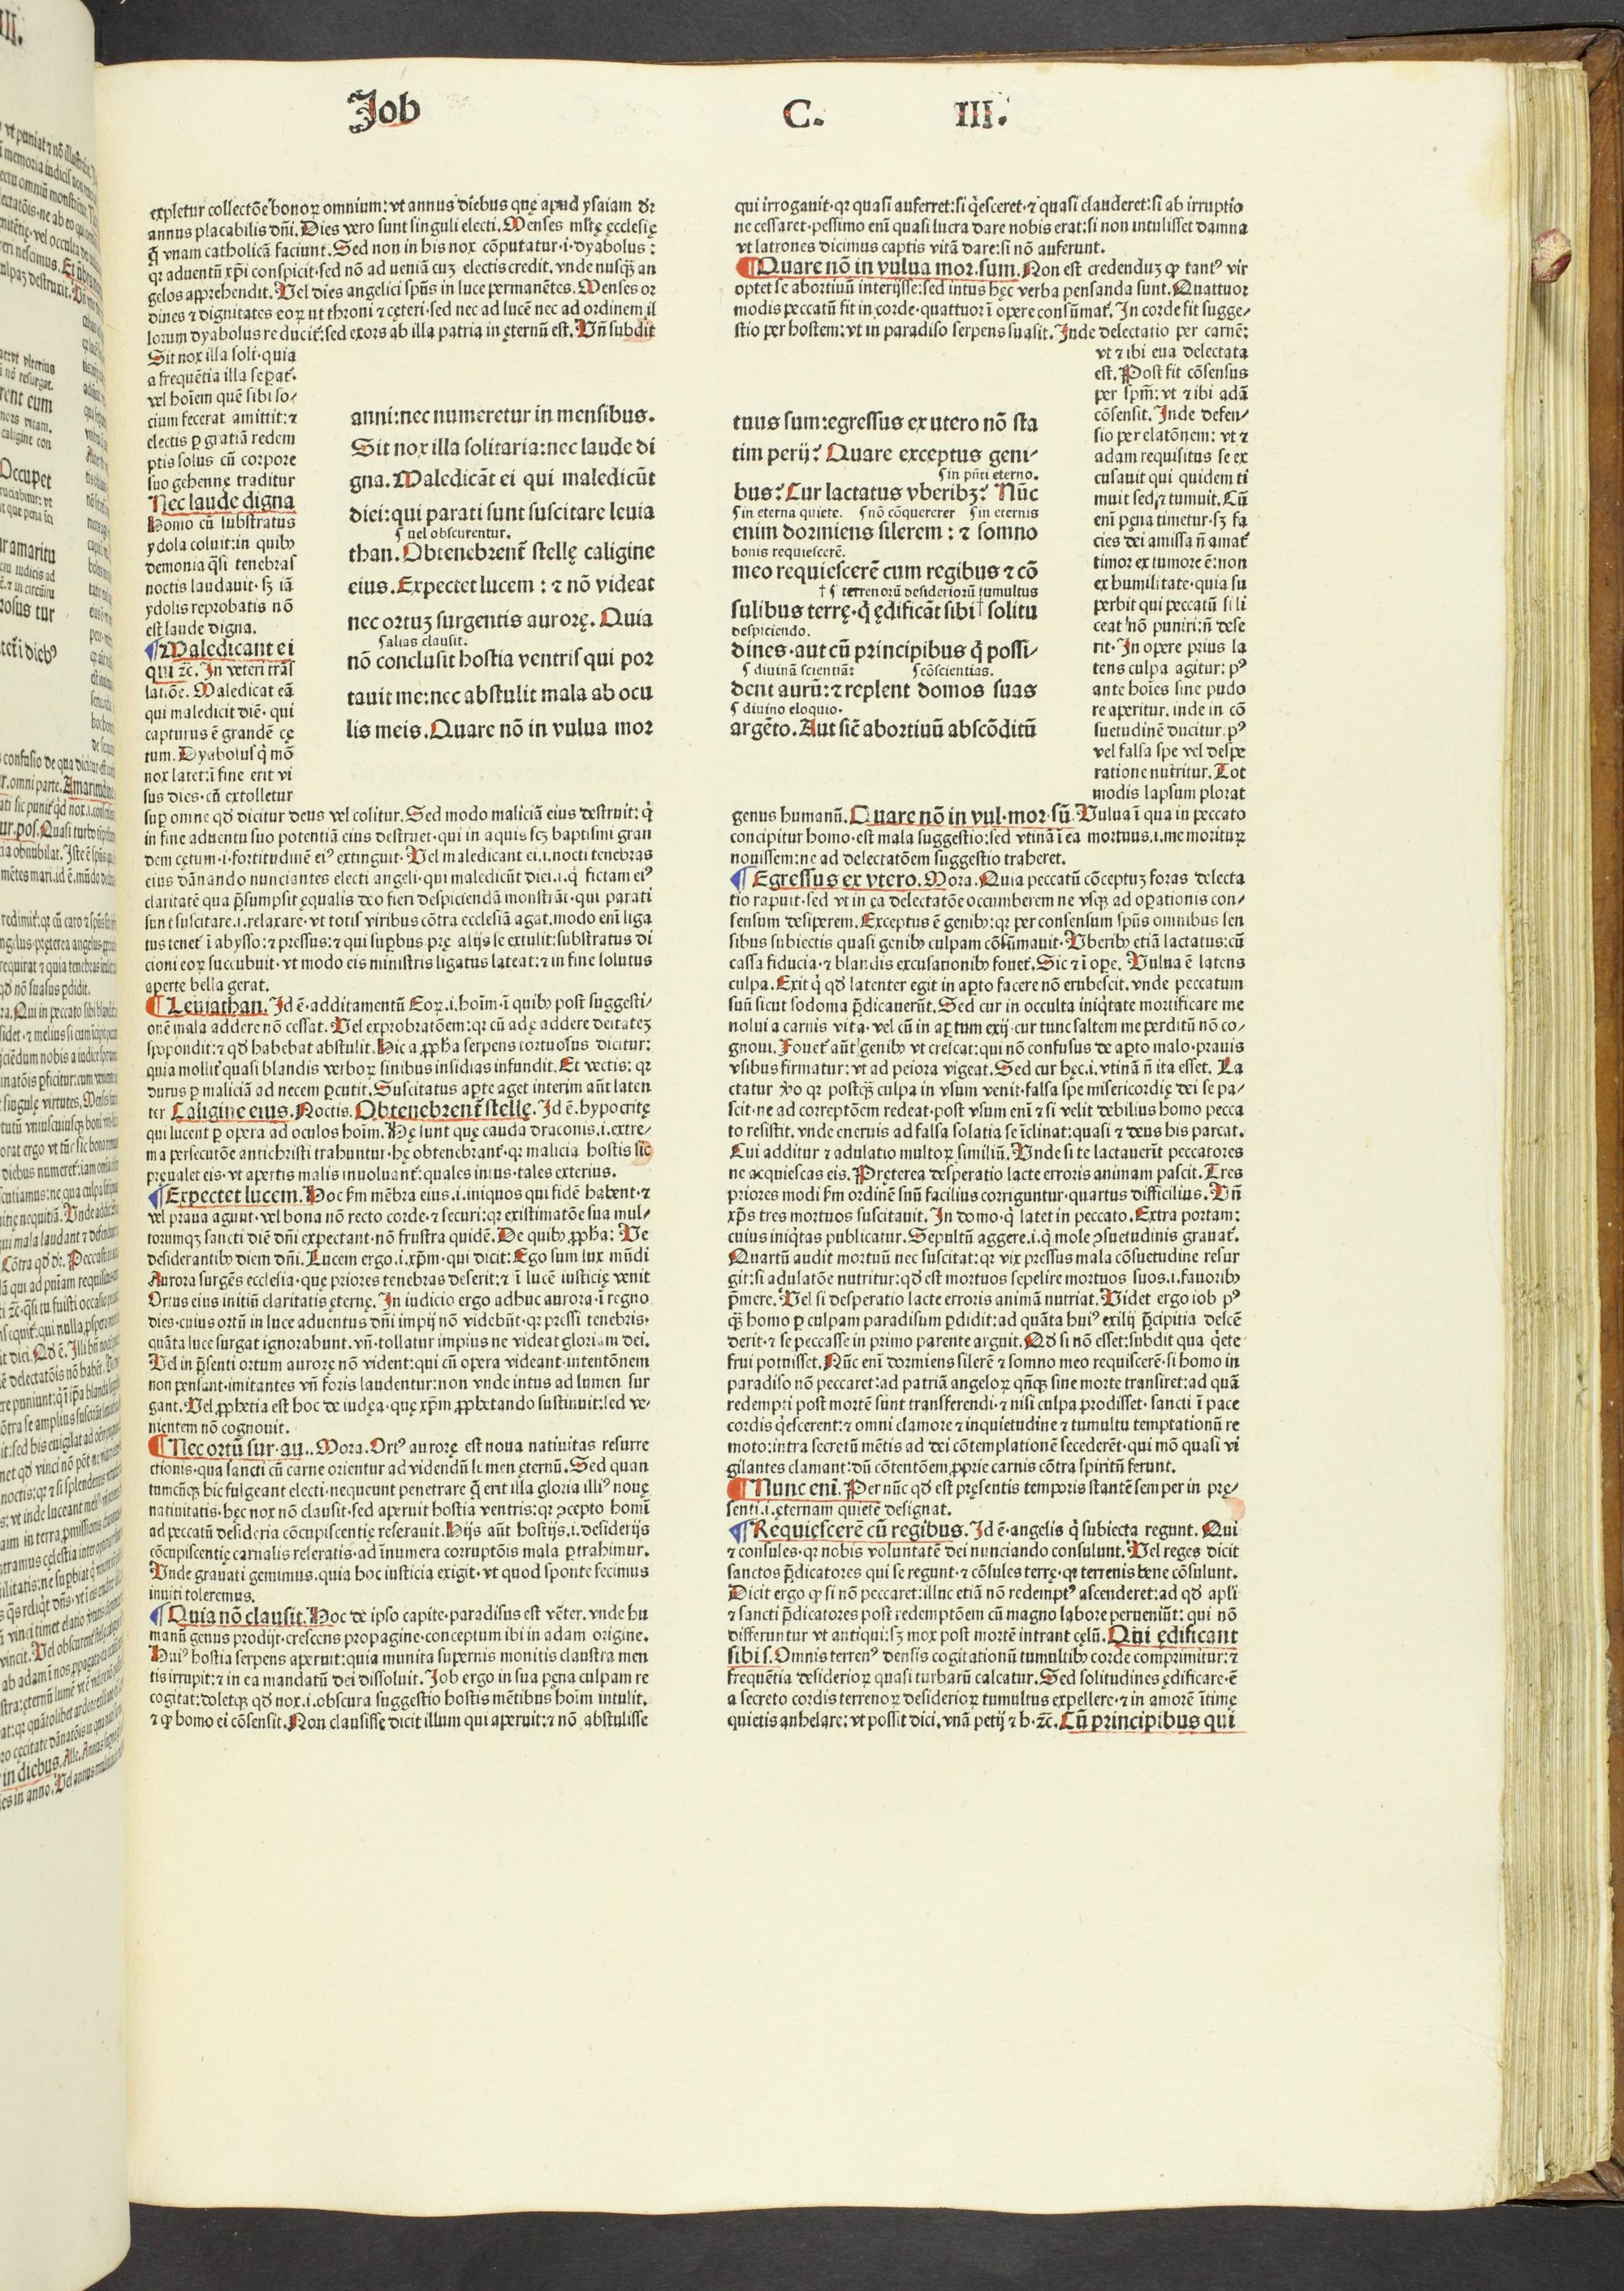 Job C. III.
expletur collectōe bonoꝝ omnium: vt annus diebus quę apud ysaiam dꝛ
annus placabilis dn̄i. Dies vero sunt singuli electi. Menses ml̄tę ęcclesię
q̄ vnam catholicā faciunt. Sed non in his nox cōputatur·i·dyabolus:
qꝛ aduentū xp̄i conspicit·sed nō ad ueniā cuʒ electis credit. vnde nusq̄ʒ an
gelos apprehendit. Vel dies angelici spūs in luce permanētes. Menses or
dines ⁊ dignitates eoꝝ ut throni ⁊ cęteri·sed nec ad lucē nec ad ordinem il
lorum dyabolus reducit᷑:sed exors ab illa patria in ęternū est. Vn̄ subdit
Sit nox illa soli·quia
a frequētia illa sepat᷑.
vel hoīem quē sibi so⸗
cium fecerat amittit:⁊
electis ꝑ gratiā redem
ptis solus cū corpore
suo gehennę traditur
Nec laude digna
Homo cū substratus
ydola coluit:in quibꝰ
demonia q̄si tenebras
noctis laudauit·sʒ iā
ydolis reprobatis nō
est laude digna.
¶Maledicant ei
qui ⁊c̄. In veteri trāſ
latiōe. Maledicat eā
qui maledicit diē· qui
capturus ē grandē cę
tum. Dyabolus q̇ mō
nox latet:ī fine erit vi
sus dies·cū extolletur
anni:nec numeretur in mensibus.
Sit nox illa solitaria:nec laude di
gna. Maledicāt ei qui maledicūt
diei:qui parati sunt suscitare leuia
⸿ uel obscurentur.
than. Obtenebrent᷑ stellę caligine
eius. Expectet lucem : ⁊ nō videat
nec ortuʒ surgentis aurorę. Quia
⸿alias clausit.
nō conclusit hostia ventris qui por
tauit me:nec abstulit mala ab ocu
lis meis. Quare nō in vulua mor
sup omne qd̄ dicitur deus vel colitur. Sed modo maliciā eius destruit: q̇
in fine aduentu suo potentiā eius destruet·qui in aquis scʒ baptismi gran
dem cętum·i·fortitudinē eiꝰ extinguit· Vel maledicant ei.i.nocti tenebras
eius dānando nunciantes electi angeli·qui maledicūt diei.i.q̇ fictam eiꝰ
claritatē qua p̄sumpsit ęqualis deo fieri despiciendā monstrāt·qui parati
sunt suscitare.i.relaxare·vt totis viribus cōtra ecclesiā agat.modo enī liga
tus tenet᷑ ī abysso:⁊ pressus:⁊ qui supbus prę alijs se extulit:substratus di
cioni eoꝝ succubuit·vt modo eis ministris ligatus lateat:⁊ in fine solutus
aperte bella gerat.
¶Leuiathan. Id ē·additamentū Eoꝝ.i.hoīm·ī quibꝰ post suggesti⸗
onē mala addere nō cessat. Vel exprobratōem:qꝛ cū adę addere deitateʒ
spopondit:⁊ qd̄ habebat abstulit. Hic a ꝓpha serpens tortuosus dicitur:
quia mollit᷑ quasi blandis verboꝝ sinibus insidias infundit. Et vectis: qꝛ
durus ꝑ maliciā ad necem ꝑcutit. Suscitatus apte aget interim aūt laten
ter Caligine eius. Noctis. Obtenebrent᷑ stellę. Id ē.hypocritę
qui lucent ꝑ opera ad oculos hoīm. Hę sunt quę cauda draconis.i.extre⸗
ma persecutōe antichristi trahuntur·hę obtenebrant᷑·qꝛ malicia hostis sic
pręualet eis·vt apertis malis inuoluant᷑: quales intus·tales exterius.
¶Expectet lucem. Hoc s̄m mēbra eius.i.iniquos qui fidē habent·⁊
vel praua agunt·vel bona nō recto corde·⁊ securi:qꝛ existimatōe sua mul⸗
torumqʒ sancti diē dn̄i expectant·nō frustra quidē. De quibꝰ ꝓpha: Ve
desiderantibꝰ diem dn̄i. Lucem ergo.i.xp̄m·qui dicit: Ego sum lux mūdi
Aurora surgēs ecclesia·quę priores tenebras deserit:⁊ ī lucē iusticię venit
Ortus eius initiū claritatis ęternę. In iudicio ergo adhuc aurora·ī regno
dies·cuius ortū in luce aduentus dn̄i impij nō videbūt·qꝛ pressi tenebris·
quāta luce surgat ignorabunt.vn̄·tollatur impius ne videat gloriam dei.
Vel in p̄senti ortum aurorę nō vident:qui cū opera videant·intentōnem
non pensant·imitantes vn̄ foris laudentur:non vnde intus ad lumen sur
gant. Vel ꝓphetia est hoc de iudęa·quę xp̄m ꝓphetando sustinuit:sed ve⸗
nientem nō cognouit.
¶Nec ortū sur·au.. Mora. Ortꝰ aurorę est noua natiuitas resurre
ctionis·qua sancti cū carne orientur ad videndū lumen ęternū. Sed quan
tumcūqʒ hic fulgeant electi·nequeunt penetrare q̄ erit illa gloria illiꝰ nouę
natiuitatis·hęc nox nō clausit·sed aperuit hostia ventris:qꝛ ↄcepto homī
ad peccatū desideria cōcupiscentię reserauit. Hijs aūt hostijs.i.desiderijs
cōcupiscentię carnalis reseratis·ad īnumera corruptōis mala ꝑtrahimur.
Vnde grauati gemimus·quia hoc iusticia exigit·vt quod sponte fecimus
inuiti toleremus.
¶Quia nō clausit. Hoc de ipso capite·paradisus est vēter.vnde hu
manū genus prodijt·crescens propagine·conceptum ibi in adam origine.
Huiꝰ hostia serpens aperuit:quia munita supernis monitis claustra men
tis irrupit:⁊ in ea mandatū dei dissoluit. Job ergo in sua pęna culpam re
cogitat:doletqʒ qd̄ nox.i.obscura suggestio hostis mētibus hoīm intulit.
⁊ ꝙ homo ei cōsensit. Non clausisse dicit illum qui aperuit:⁊ nō abstulisse
qui irrogauit·qꝛ quasi auferret:si q̇esceret·⁊ quasi clauderet:si ab irruptio
ne cessaret·pessimo enī quasi lucra dare nobis erat:si non intulisset damna
vt latrones dicimus captis vitā dare:si nō auferunt.
¶Quare nō in vulua mor.sum. Non est credenduʒ ꝙ tantꝰ vir
optet se abortiuū interijsse:sed intus hęc verba pensanda sunt. Quattuor
modis peccatū fit in corde·quattuor ī opere consūmat᷑. In corde fit sugge⸗
stio per hostem: vt in paradiso serpens suasit. Inde delectatio per carnē:
vt ⁊ ibi eua delectata
est. Post fit cōsensus
per spm̄: vt ⁊ ibi adā
cōsensit. Inde defen⸗
sio per elatōnem: vt ⁊
adam requisitus se ex
cusauit qui quidem ti
muit sed ⁊ tumuit. Cū
enī pęna timetur·sʒ fa
cies dei amissa n̄ amat᷑
timor ex tumore ē:non
ex humilitate·quia su
perbit qui peccatū si li
ceat nō puniri:n̄ dese
rit. In opere prius la
tens culpa agitur: pꝰ
ante hoīes sine pudo
re aperitur.inde in cō
suetudinē ducitur.pꝰ
vel falsa spe vel despe
ratione nutritur. Tot
modis lapsum plorat
tuus sum:egressus ex utero nō sta
tim perij? Quare exceptus geni⸗
⸿in pn̄ti eterno.
bus? Cur lactatus vberibʒ? Nūc
⸿in eterna quiete. ⸿nō cōquererer ⸿in eternis
enim dormiens silerem : ⁊ somno
bonis requiescerē.
meo requiescerē cum regibus ⁊ cō
† ⸿ terrenorū desideriorū tumultus
sulibus terrę·q̇ ędificāt sibi† solitu
despiciendo.
dines·aut cū principibus q̇ possi⸗
⸿ diuinā scientiā: ⸿cōscientias.
dent aurū:⁊ replent domos suas
⸿ diuino eloquio.
argēto. Aut sic̄ abortiuū abscōditū
genus humanū. Quare nō in vul·mor·sū. Vulua ī qua in peccato
concipitur homo·est mala suggestio:sed vtinā ī ea mortuus.i.me moriturꝝ
nouissem:ne ad delectatōem suggestio traheret.
¶Egressus ex vtero. Mora. Quia peccatū cōceptuʒ foras delecta
tio rapuit·sed vt in ea delectatōe occumberem ne vsqʒ ad opationis con⸗
sensum desiperem. Exceptus ē genibꝰ:qꝛ per consensum spūs omnibus sen
sibus subiectis quasi genibꝰ culpam cōsūmauit· Vberibꝰ etiā lactatus:cū
cassa fiducia·⁊ blandis excusationibꝰ fouet᷑. Sic ⁊ ī ope. Vulua ē latens
culpa. Exit q̇ qd̄ latenter egit in apto facere nō erubescit.vnde peccatum
suū sicut sodoma p̄dicauerūt. Sed cur in occulta iniq̇tate mortificare me
nolui a carnis vita·vel cū in aptum exij·cur tunc saltem me perditū nō co⸗
gnoui. Fouet᷑ aūt genibꝰ vt crescat:qui nō confusus de apto malo·prauis
vsibus firmatur:vt ad peiora vigeat. Sed cur hęc.i.vtinā n̄ ita esset. La
ctatur ꝟo qꝛ postq̄ʒ culpa in vsum venit·falsa spe misericordię dei se pa⸗
scit·ne ad correptōem redeat·post vsum enī ⁊ si velit debilius homo pecca
to resistit. vnde eneruis ad falsa solatia se īclinat:quasi ⁊ deus his parcat.
Cui additur ⁊ adulatio multoꝝ similiū. Vnde si te lactauerūt peccatores
ne acquiescas eis. Pręterea desperatio lacte erroris animam pascit. Tres
priores modi s̄m ordinē suū facilius corriguntur·quartus difficilius. Vn̄
xp̄s tres mortuos suscitauit. In domo·q̇ latet in peccato. Extra portam:
cuius iniq̇tas publicatur. Sepultū aggere.i.q̇ mole ↄsuetudinis grauat᷑.
Quartū audit mortuū nec suscitat:qꝛ vix pressus mala cōsuetudine resur
git:si adulatōe nutritur:qd̄ est mortuos sepelire mortuos suos.i.fauoribꝰ
p̄mere. Vel si desperatio lacte erroris animā nutriat. Videt ergo iob pꝰ
q̄ʒ homo ꝑ culpam paradisum ꝑdidit:ad quāta huiꝰ exilij p̄cipitia descē
derit·⁊ se peccasse in primo parente arguit. Qd̄ si nō esset:subdit qua q̇ete
frui potuisset. Nūc enī dormiens silerē ⁊ somno meo requiscerē·si homo in
paradiso nō peccaret:ad patriā angeloꝝ qn̄qʒ sine morte transiret:ad quā
redempti post mortē sunt transferendi·⁊ nisi culpa prodisset· sancti ī pace
cordis q̇escerent:⁊ omni clamore ⁊ inquietudine ⁊ tumultu temptationū re
moto:intra secretū mētis ad dei cōtemplationē secederēt·qui mō quasi vi
gilantes clamant:dū cōtentōem ꝓprie carnis cōtra spiritū ferunt.
¶Nunc enī. Per nūc qd̄ est pręsentis temporis stantē semper in prę⸗
senti.i.ęternam quietē designat.
¶Requiescerē cū regibus. Id ē·angelis q̇ subiecta regunt. Qui
⁊ consules·qꝛ nobis voluntatē dei nunciando consulunt. Vel reges dicit
sanctos p̄dicatores qui se regunt·⁊ cōsules terrę·qꝛ terrenis bene cōsulunt.
Dicit ergo ꝙ si nō peccaret:illuc etiā nō redemptꝰ ascenderet:ad qd̄ apli
⁊ sancti p̄dicatores post redemptōem cū magno labore perueniūt: qui nō
differuntur vt antiqui:sʒ mox post mortē intrant cęlū. Qui ędificant
sibi s. Omnis terrenꝰ densis cogitationū tumultibꝰ corde comprimitur:⁊
frequētia desiderioꝝ quasi turbarū calcatur. Sed solitudines ędificare·ē
a secreto cordis terrenoꝝ desiderioꝝ tumultus expellere·⁊ in amorē ītimę
quietis anhelare: vt possit dici. vnā petij ⁊ h·⁊c̄. Cū principibus qui